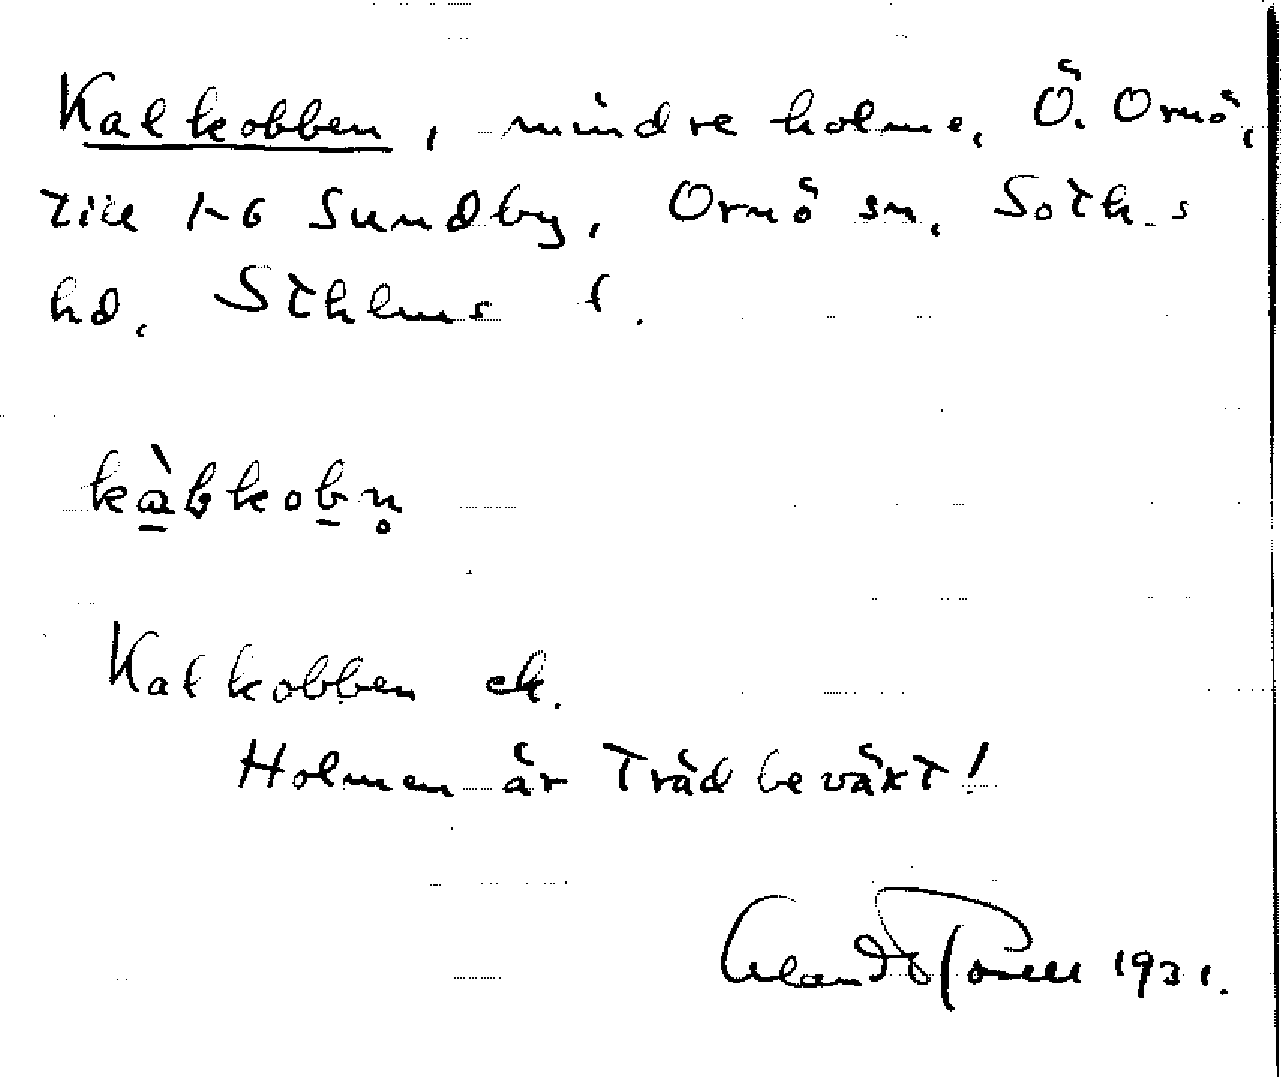 Kalkobben, mindre holme, Ö. Ornö,
till 1-6 Sundby, Ornö sn, Soth.s
hd, Sthlms l.
kàbkobn̥
Kalkobben ek.
Holmen är trädbeväxt!
Erland Rosell 1931.